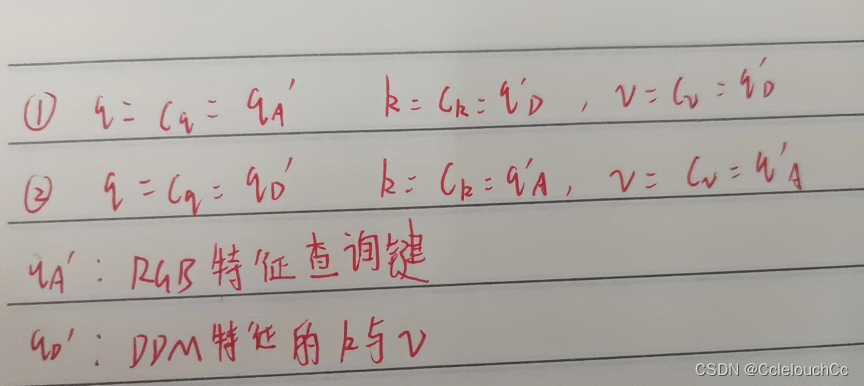 ① q = Cq = qA' k = Ck = q'D , v = Cv = q'D
② q = Cq = qD' k = Ck = q'A , v = Cv = q'A
qA' : RGB 特征查询键
qD' : DDM 特征的 k与v
CSDN @CclelouchCc